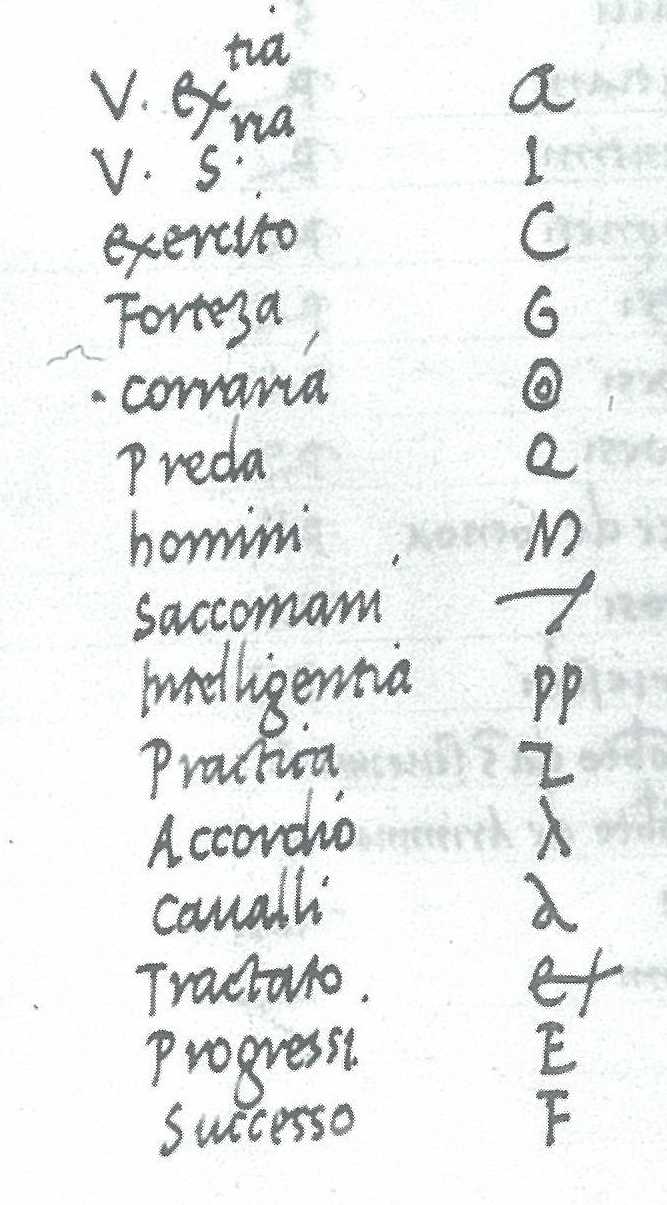 V. ex tia ria a
V. S. 1
exercito C
Forteza G
. corraria ⊙
Preda Q
homini M
Saccomani
Intelligentia pp
Practica Z
Accordio λ
Caualli
Tractato . et
Progressi E
Successo F